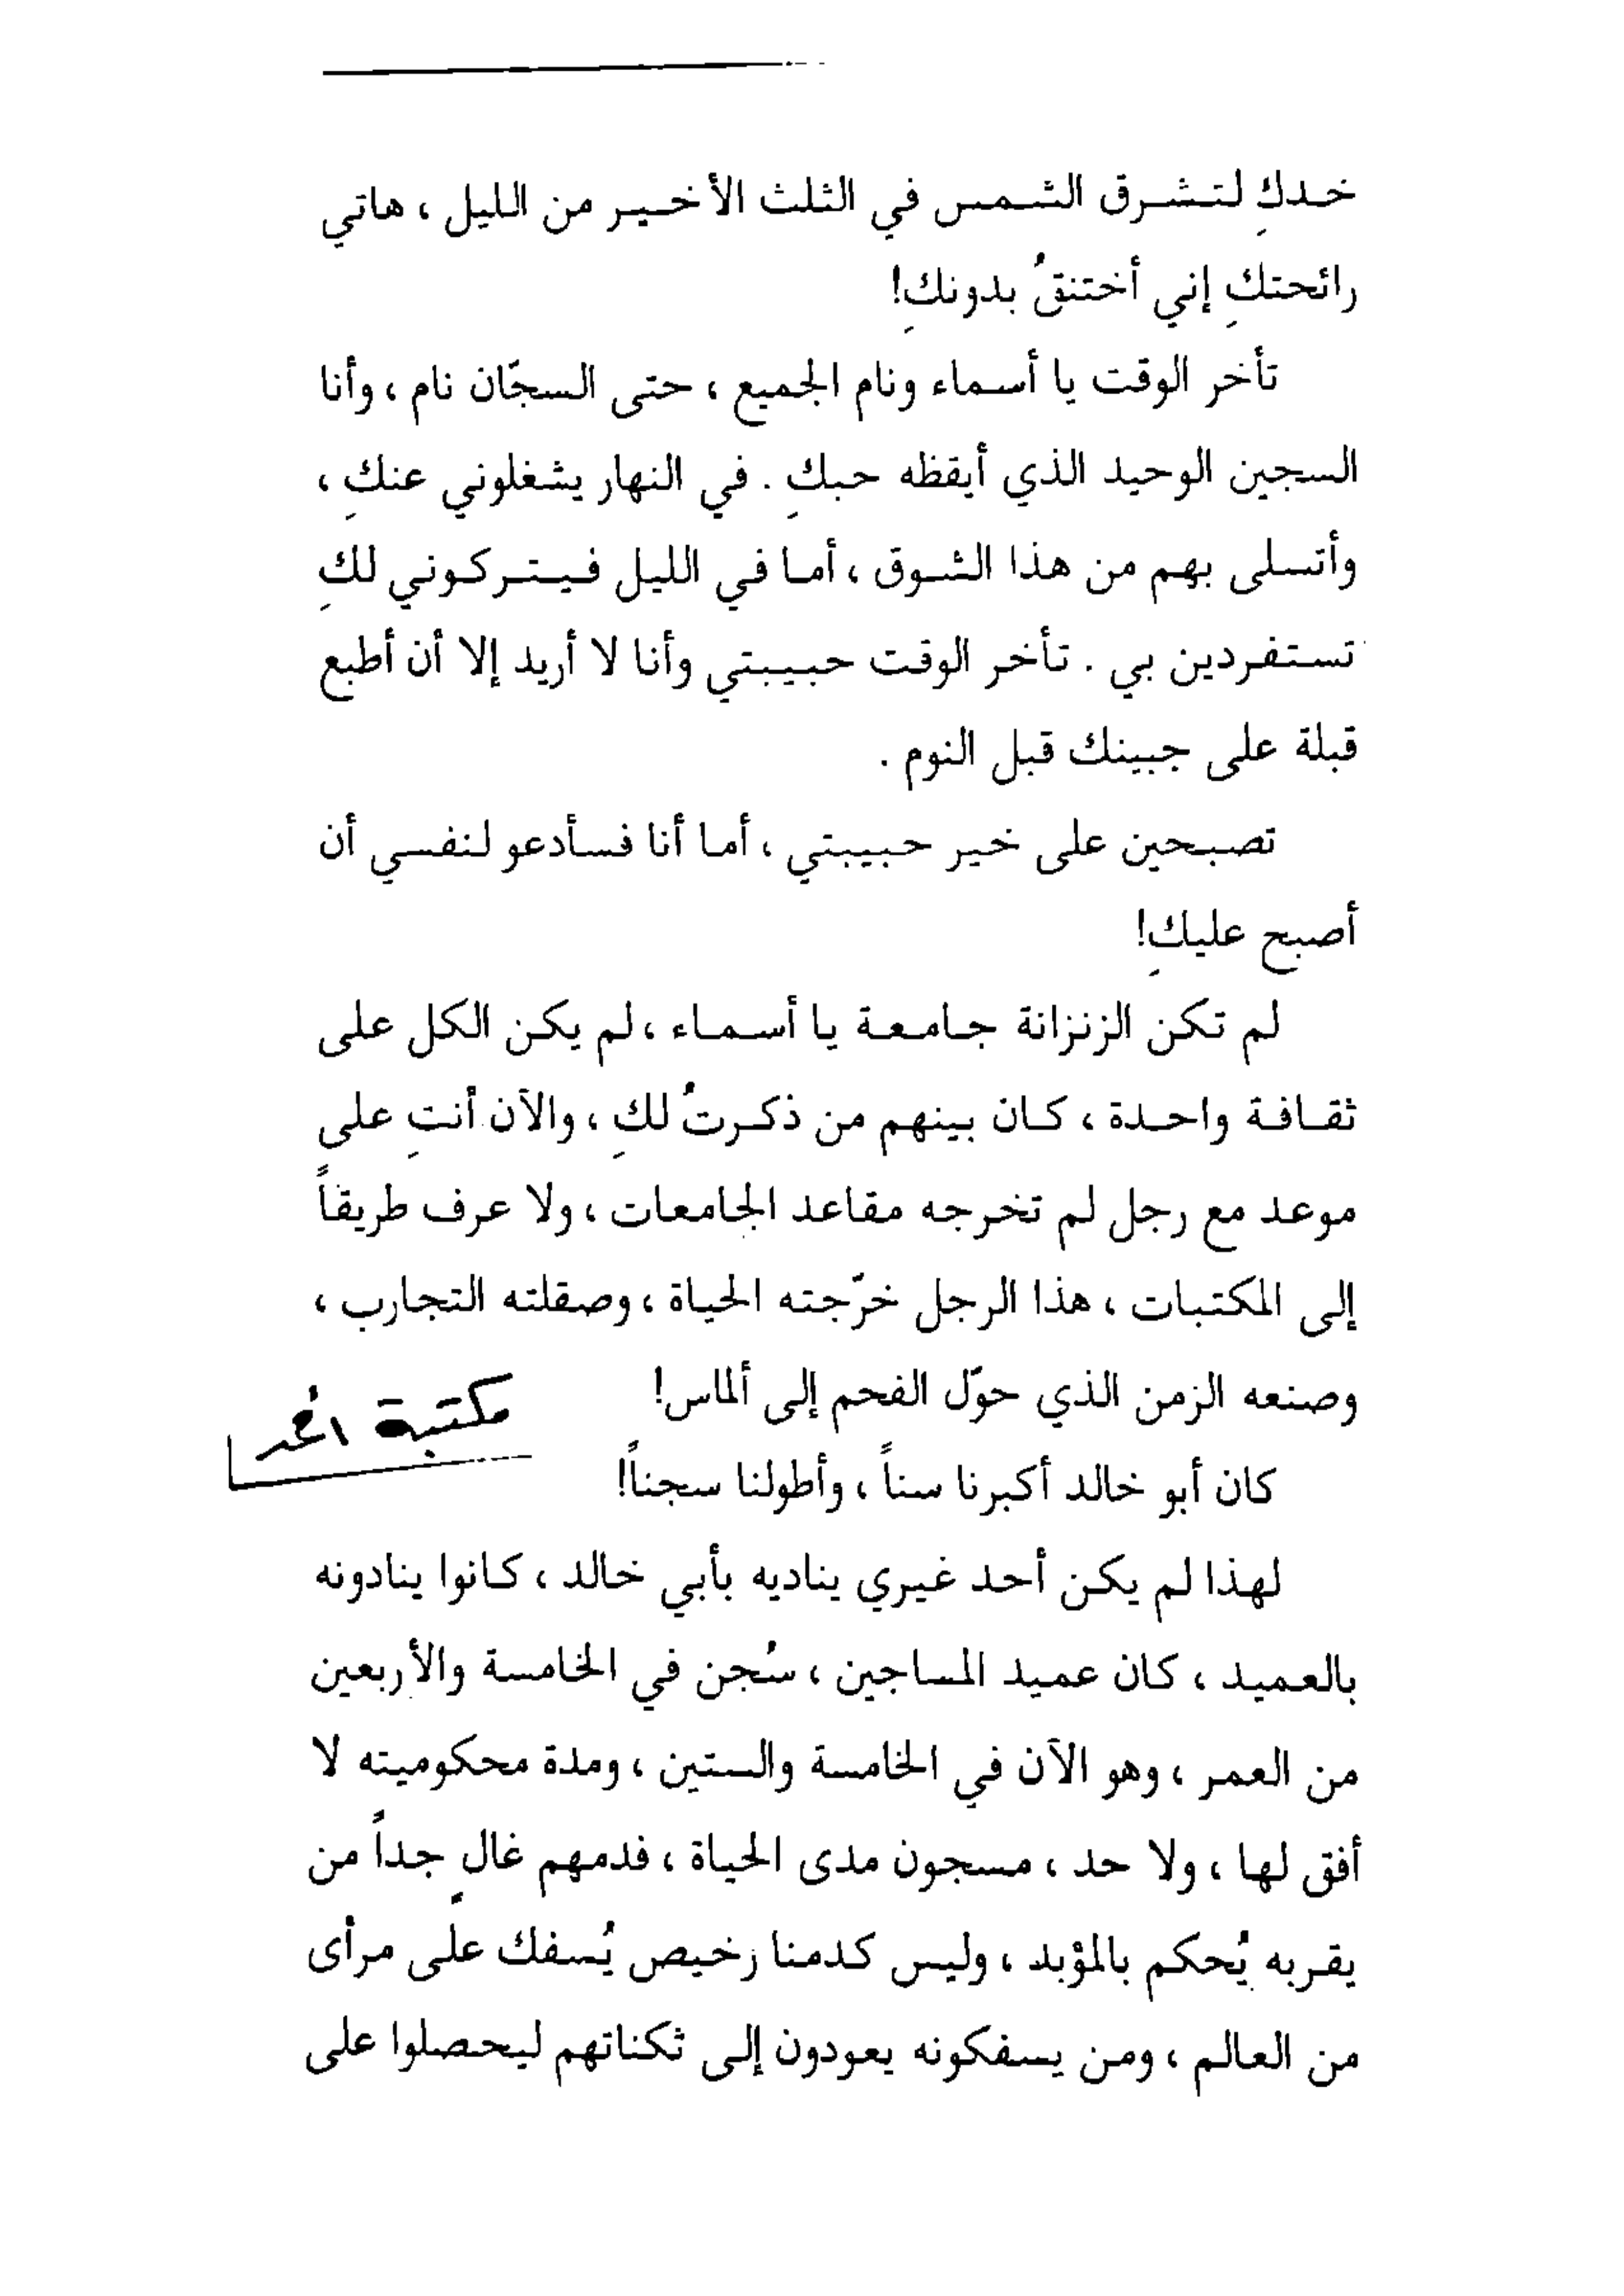 خدكِ لتشرق الشمس في الثلث الأخير من الليل ، هاتي
رائحتكِ إني أختنقُ بدونكِ!
تأخر الوقت يا أسماء ونام الجميع ، حتى السجّان نام ، وأنا
السجين الوحيد الذي أيقظه حبكِ . في النهار يشغلوني عنكِ ،
وأتسلى بهم من هذا الشوق ، أما في الليل فيتركوني لكِ
تستفردين بي . تأخر الوقت حبيبتي وأنا لا أريد إلا أن أطبع
قبلة على جبينك قبل النوم .
تصبحين على خير حبيبتي ، أما أنا فسأدعو لنفسي أن
أصبح عليكِ!
لم تكن الزنزانة جامعة يا أسماء ، لم يكن الكل على
ثقافة واحدة ، كان بينهم من ذكرتُ لكِ ، والآن أنتِ على
موعد مع رجل لم تخرجه مقاعد الجامعات ، ولا عرف طريقاً
إلى المكتبات ، هذا الرجل خرّجته الحياة ، وصقلته التجارب ،
وصنعه الزمن الذي حوّل الفحم إلى ألماس!
مكتبة
كان أبو خالد أكبرنا سناً ، وأطولنا سجناً!
لهذا لم يكن أحد غيري يناديه بأبي خالد ، كانوا ينادونه
بالعميد ، كان عميد المساجين ، سُجن في الخامسة والأربعين
من العمر ، وهو الآن في الخامسة والستين ، ومدة محكوميته لا
أفق لها ، ولا حد ، مسجون مدى الحياة ، فدمهم غالٍ جداً من
يقربه يُحكم بالمؤبد ، وليس كدمنا رخيص يُسفك على مرأى
من العالم ، ومن يسفكونه يعودون إلى ثكناتهم ليحصلوا على